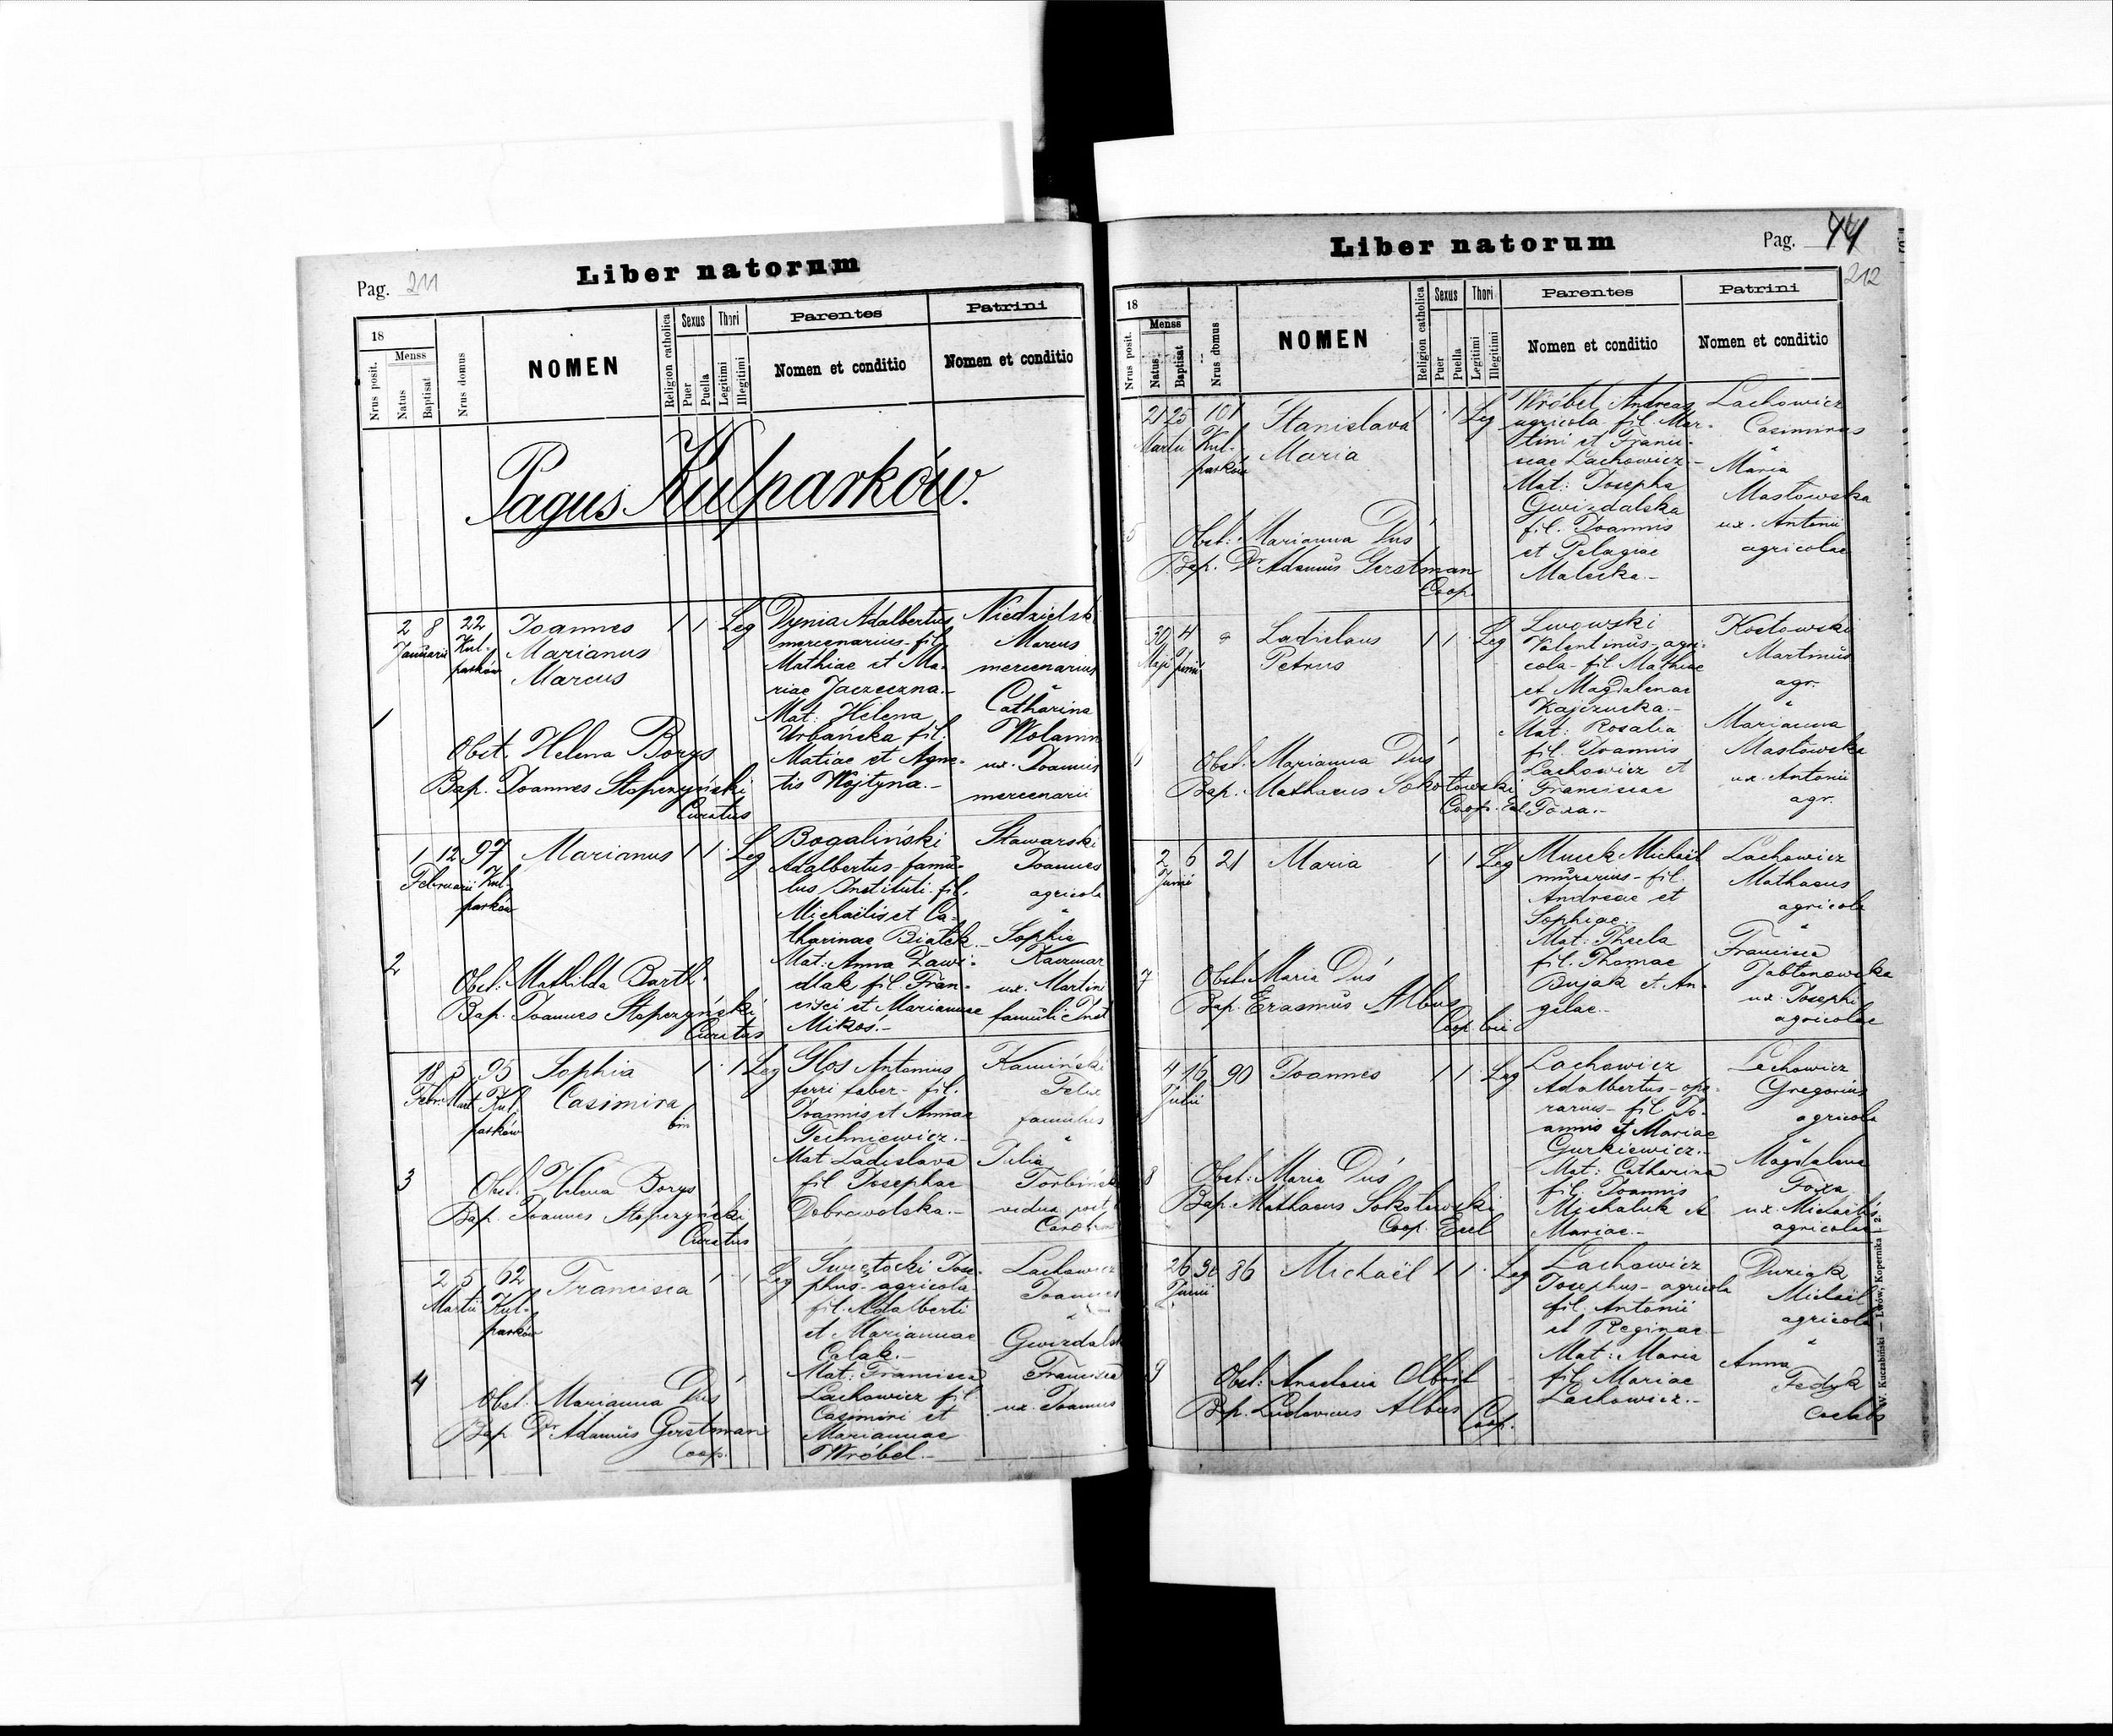 Pag. 211
Liber natorum
18
Nrus posit.
Menss
Natus
Baptisat
Nrus domus
NOMEN
Religion catholica
Sexus
Puer
Puella
Thori
Legitimi
Illegitimi
Parentes
Nomen et conditio
Patrini
Nomen et conditio
Pagus Kulparków.
1
2 8 22
Januarii Kul-
parków
Joannes
Marianus
Marcus
1 1 Leg
Obst. Helena Borys
Bap. Joannes Stopczyński
Curatus
Dynia Adalbertus
mercenarius - fil.
Mathiae et Ma-
riae Jaczeczna.-
Mat: Helena
Urbańska fil.
Matiae et Agne-
tis Wojtyna.-
Niedzielsk
Marcus
mercenarius
Catharina
Wolamn
ux. Joannis
mercenarii
2
1 12 97
Februarii Kul-
parków
Marianus
1 1 Leg
Obst. Mathilda Barth
Bap. Joannes Stopczyński
Curatus
Bogaliński
Adalbertus famu-
lus Instituti - fil.
Michaëlis et Ca-
tharinae Białek.-
Mat: Anna Dawi-
dlak fil. Fran-
cisci et Mariannae
Mikoś.-
Stawarski
Joannes
agricola
Sophia
Kaczmar
ux. Martini
famuli Inst
3
18 5 95
Febr. Mart. Kul-
parków
Sophia
Casimira
bin
1 1 Leg
Obst. Helena Borys
Bap. Joannes Stopczyński
Curatus
Głos Antonius
ferri faber - fil.
Joannis et Annae
Techniewicz.-
Mat Ladislava
fil Josephae
Dobrowolska.-
Kamiński
Felix
famulus
Julia
Torbińsk
vidua post
4
2 5 62
Martii Kul-
parków
Francisca
1 1 Leg
Obst. Marianna Duś
Bap Dr Adamus Gerstman
Coop.
Swiętocki Jose-
phus - agricola
fil. Adalberti
et Mariannae
Calak.-
Mat: Francisca
Lachowicz fil
Casimiri et
Mariannae
Wróbel.-
Lachowicz
Joannes
Gwizdalsk
Francisca
ux. Joannis
Liber natorum
Pag. 44
212
18
Nrus posit.
Menss
Natus
Baptisat
Nrus domus
NOMEN
Religion catholica
Sexus
Puer
Puella
Thori
Legitimi
Illegitimi
Parentes
Nomen et conditio
Patrini
Nomen et conditio
5
21 25 101
Martii Kul-
parków
Stanislava
Maria
1 1 Leg
Obst: Marianna Duś
Bap. Dr Adamus Gerstman
Coop.
Wróbel Andreas
agricola fil. Mar-
tini et Franci-
scae Lachowicz-
Mat: Josepha
Gwizdalska
fil. Joannis
et Pelagiae
Malecka.-
Lachowicz
Casimirus
Maria
Masłowska
ux. Antonii
agricolae
30 4
Maji Junii
Ladislaus
Petrus
1 1 Leg
Obst. Marianna Duś
Bap. Mathaeus Sokołowski
Coop.
Lwowski
Valentinus - agri-
cola - fil. Mathiae
et Magdalenae
Kajczucka.-
Mat: Rosalia
fil. Joannis
Lachowicz et
Franciscae
Foxa.-
Kostowski
Martinus
agr.
Marianna
Masłowska
ux. Antonii
agr.
7
2 6 21
Junii
Maria
1 1 Leg
Obst. Maria Duś
Bap. Erasmus Albus
Coop.
Muck Michaël
murarius - fil.
Andreae et
Sophiae.-
Mat: Thecla
fil. Thomae
Bujak et An-
gelae.-
Lachowicz
Mathaeus
agricola
Francisca
Jabłonowska
ux. Josephi
agricolae
8
4 16 90
Julii
Joannes
1 1 Leg
Obst. Maria Duś
Bap. Mathaeus Sokołowski
Coop. Eccl
Lachowicz
Adalbertus - ope-
rarius - fil. Jo-
annis et Mariae
Gurkiewicz.-
Mat: Catharina
fil. Joannis
Michaluk et
Mariae.-
Lechowicz
Gregorius
agricola
Magdalena
Foxa
ux. Michaelis
agricolae
9
26 30 86
Junii
Michaël
1 1 Leg
Obst. Anastasia Olbrit
Bap. Ludovicus Albus
Coop.
Lachowicz
Josephus - agricola
fil. Antonii
et Reginae-
Mat: Maria
fil Mariae
Lachowicz.-
Duziak
Michaël
agricola
Anna
Fedyk
W. Kuczabiński — Lwów, Kopernika 2.